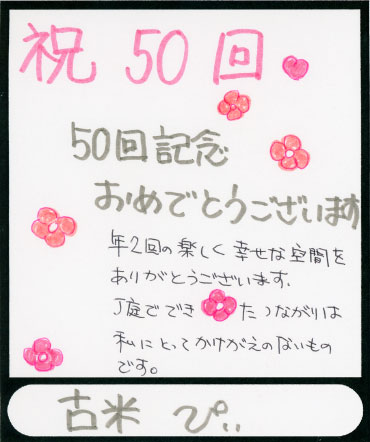 祝 50回
50回記念
おめでとうございます
年2回の楽しく幸せな空間を
ありがとうございます.
J庭でできたつながりは
私にとってかけがえのないもの
です。
古米 ぴぃ